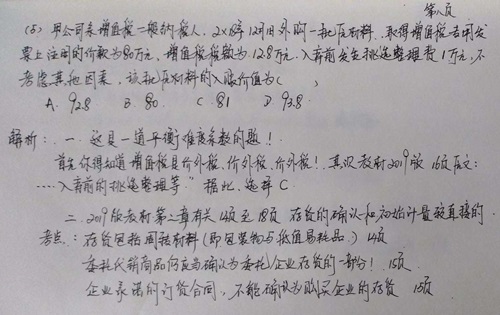 第八页
(5) 甲公司系增值税一般纳税人，2×18年12月外购一批原材料，取得增值税专用发
票上注明的价款为80万元，增值税税额为12.8万元，入库前发生挑选整理费1万元，不
考虑其他因素，该批原材料的入账价值为（　）
A. 92.8　B 80　C. 81　D 93.8
解析：一、这是一道平衡难度系数的题！
首先你得知道增值税是价外税、价外税、价外税！其次教材2019版 16页原文：
……入库前的挑选整理等" 据此，选择C
二、2019版教材第二章有关14页至18页 存货的确认和初始计量较直接的
考点：存货包括周转材料（即包装物与低值易耗品）14页
委托代销商品仍应当确认为委托企业存货的一部分！15页
企业承诺的订货合同，不能确认为购买企业的存货 15页